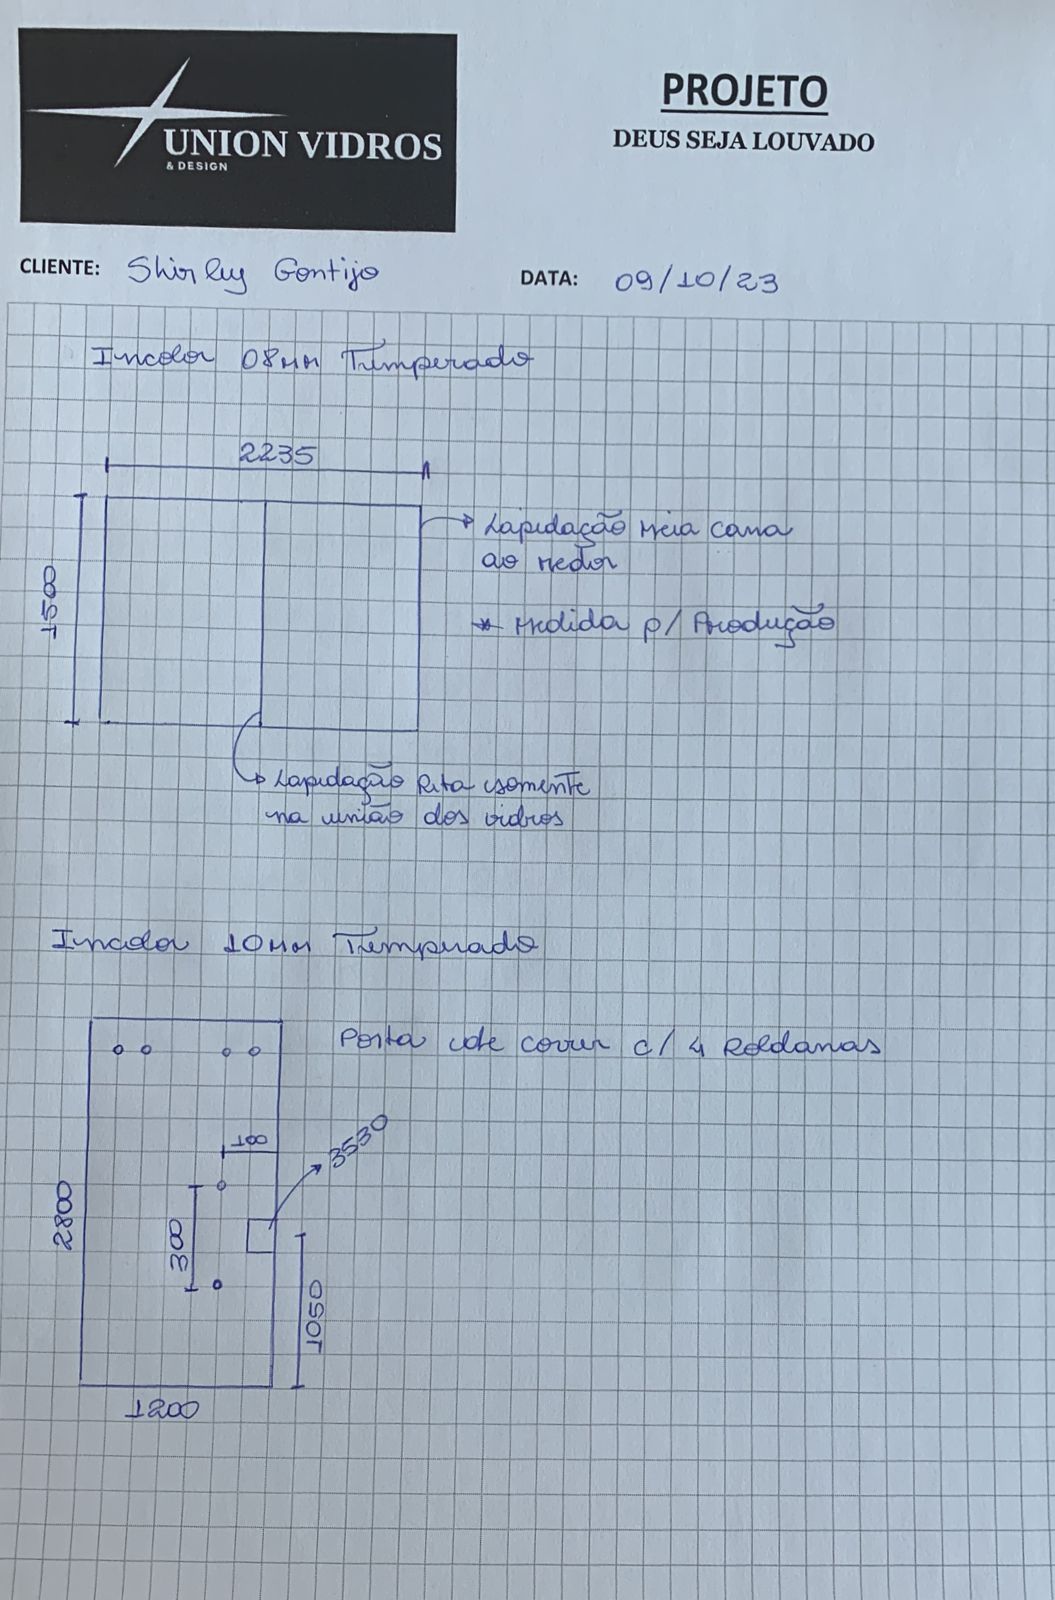 UNION VIDROS
& DESIGN
PROJETO
DEUS SEJA LOUVADO
CLIENTE: Shirley Gontijo
DATA: 09/10/23
Incolor 08mm Temperado
2235
1500
Lapidação meia cana
ao redor
* Medida p/ Produção
Lapidação Reta somente
na união dos vidros
Incolor 10mm Temperado
Porta de correr c/ 4 Roldanas
100
3530
2800
300
1050
1200